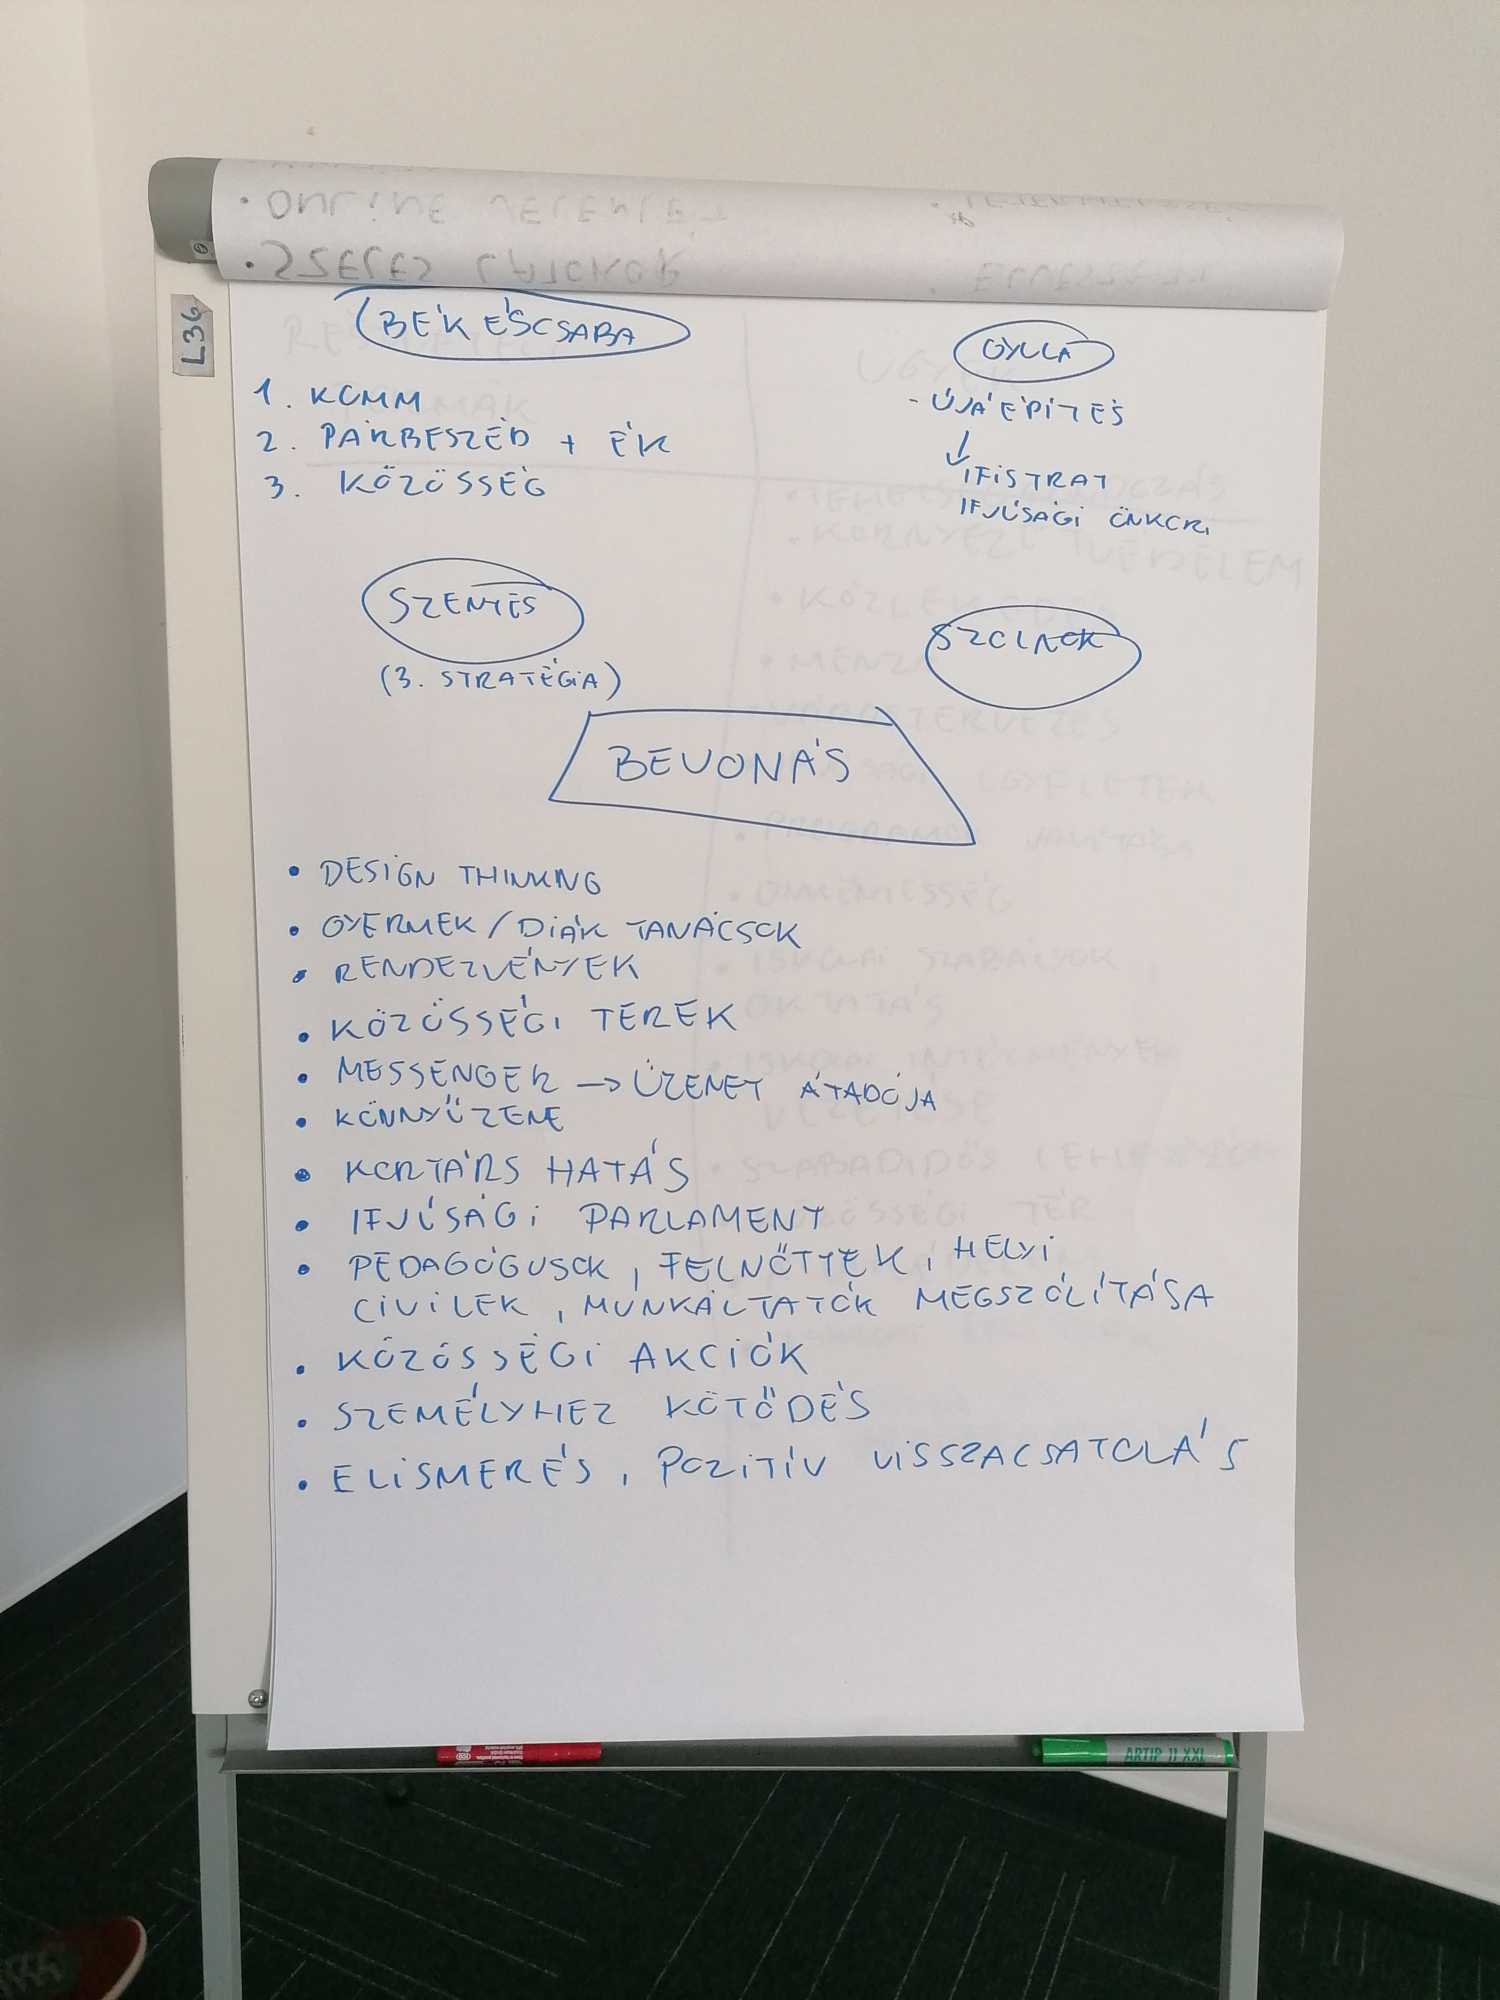 • ONLINE JELENLÉT
• SZÉLES LÁTÓKÖR
L36
BÉKÉSCSABA
1. KOMM
2. PÁRBESZÉD + ÉK
3. KÖZÖSSÉG
GYULA
- ÚJÁÉPÍTÉS
↓
IFISTRAT
IFJÚSÁGI ÖNKOR.
SZENTES
(3. STRATÉGIA)
SZOLNOK
BEVONÁS
• DESIGN THINKING
• GYERMEK / DIÁK TANÁCSOK
• RENDEZVÉNYEK
• KÖZÖSSÉGI TEREK
• MESSENGER → ÜZENET ÁTADÓJA
• KÖNNYŰZENE
• KORTÁRS HATÁS
• IFJÚSÁGI PARLAMENT
• PEDAGÓGUSOK, FELNŐTTEK, HELYI
CIVILEK, MUNKÁLTATÓK MEGSZÓLÍTÁSA
• KÖZÖSSÉGI AKCIÓK
• SZEMÉLYHEZ KÖTŐDÉS
• ELISMERÉS, POZITÍV VISSZACSATOLÁS
ARTIP 11 XXL